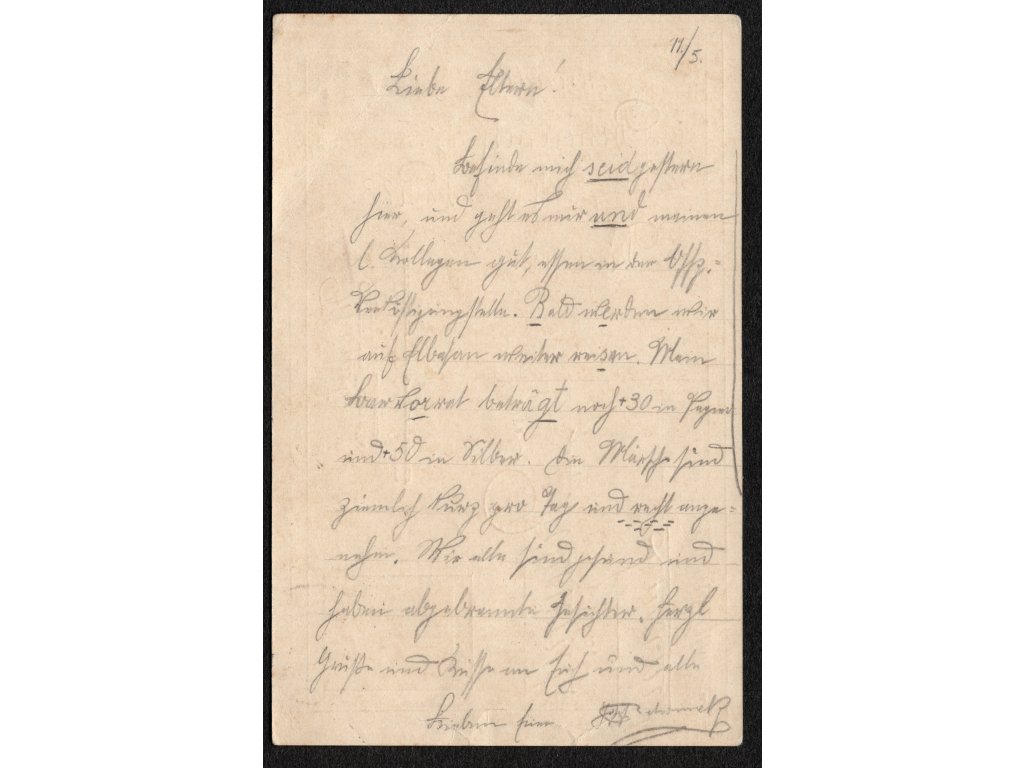 11./5.
Liebe Eltern!
Befinde mich seid gestern
hier, und geht es mir und meinen
l. Kollegen gut, essen in der Offz.=
Verköstigungstelle. Bald werden wir
auf Elbasan weiter reisen. Mein
Barvorrat beträgt noch +30 in Papier
und +50 in Silber. Die Märsche sind
ziemlich kurz pro Tag und recht ange=
nehm. Wir alle sind gesund und
haben abgebrannte Gesichter. Herzl
Grüße und Küsse an Euch und alle
Lieben Euer